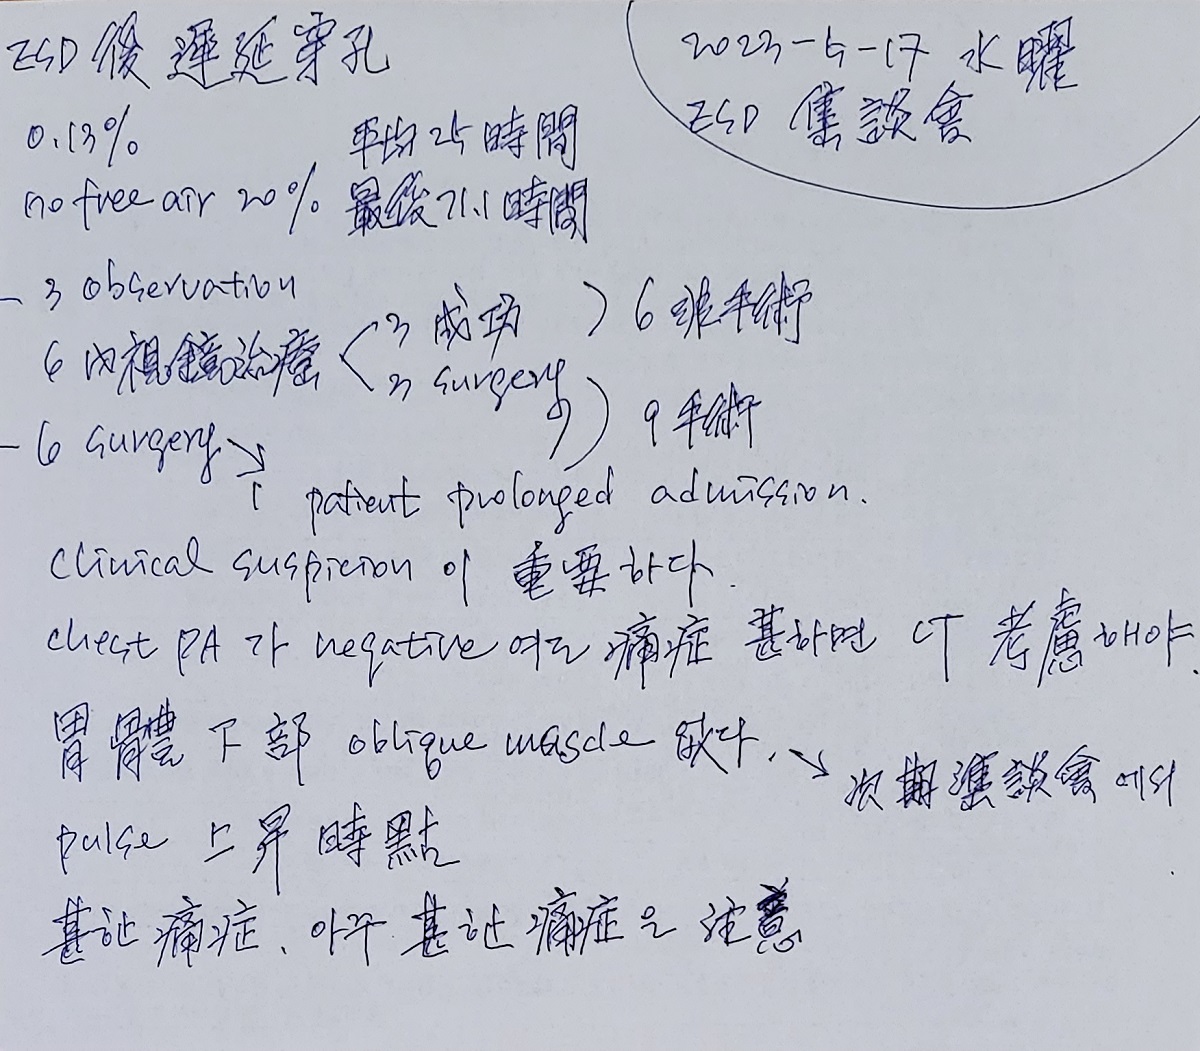 ESD 後 遲延穿孔
2023-5-17 水曜
ESD 集談會
0.13% 平均 25 時間
no free air 20% 最後 71.1 時間
- 3 observation
6 內視鏡治療 < 3 成功 ) 6 非手術
3 surgery ) 9 手術
- 6 surgery
↘ 1 patient prolonged admission.
clinical suspicion 이 重要하다.
chest PA 가 negative 여도 痛症 甚하면 CT 考慮해야.
胃體 下部 oblique muscle 없다. ↘ 次期 集談會 에서
pulse 上昇 時點
甚한 痛症, 아주 甚한 痛症은 注意